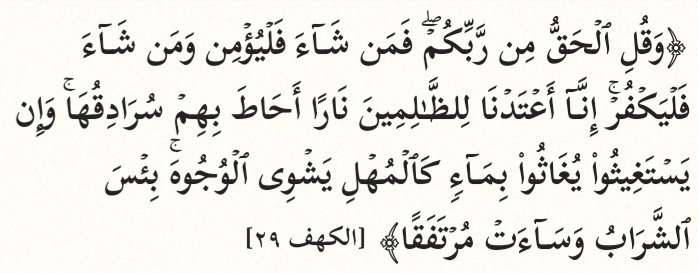 ﴿وَقُلِ ٱلۡحَقُّ مِن رَّبِّكُمۡۖ فَمَن شَآءَ فَلۡيُؤۡمِن وَمَن شَآءَ
فَلۡيَكۡفُرۡۚ إِنَّآ أَعۡتَدۡنَا لِلظَّٰلِمِينَ نَارًا أَحَاطَ بِهِمۡ سُرَادِقُهَاۚ وَإِن
يَسۡتَغِيثُواْ يُغَاثُواْ بِمَآءٖ كَٱلۡمُهۡلِ يَشۡوِي ٱلۡوُجُوهَۚ بِئۡسَ
ٱلشَّرَابُ وَسَآءَتۡ مُرۡتَفَقًا﴾ [الكهف ٢٩]